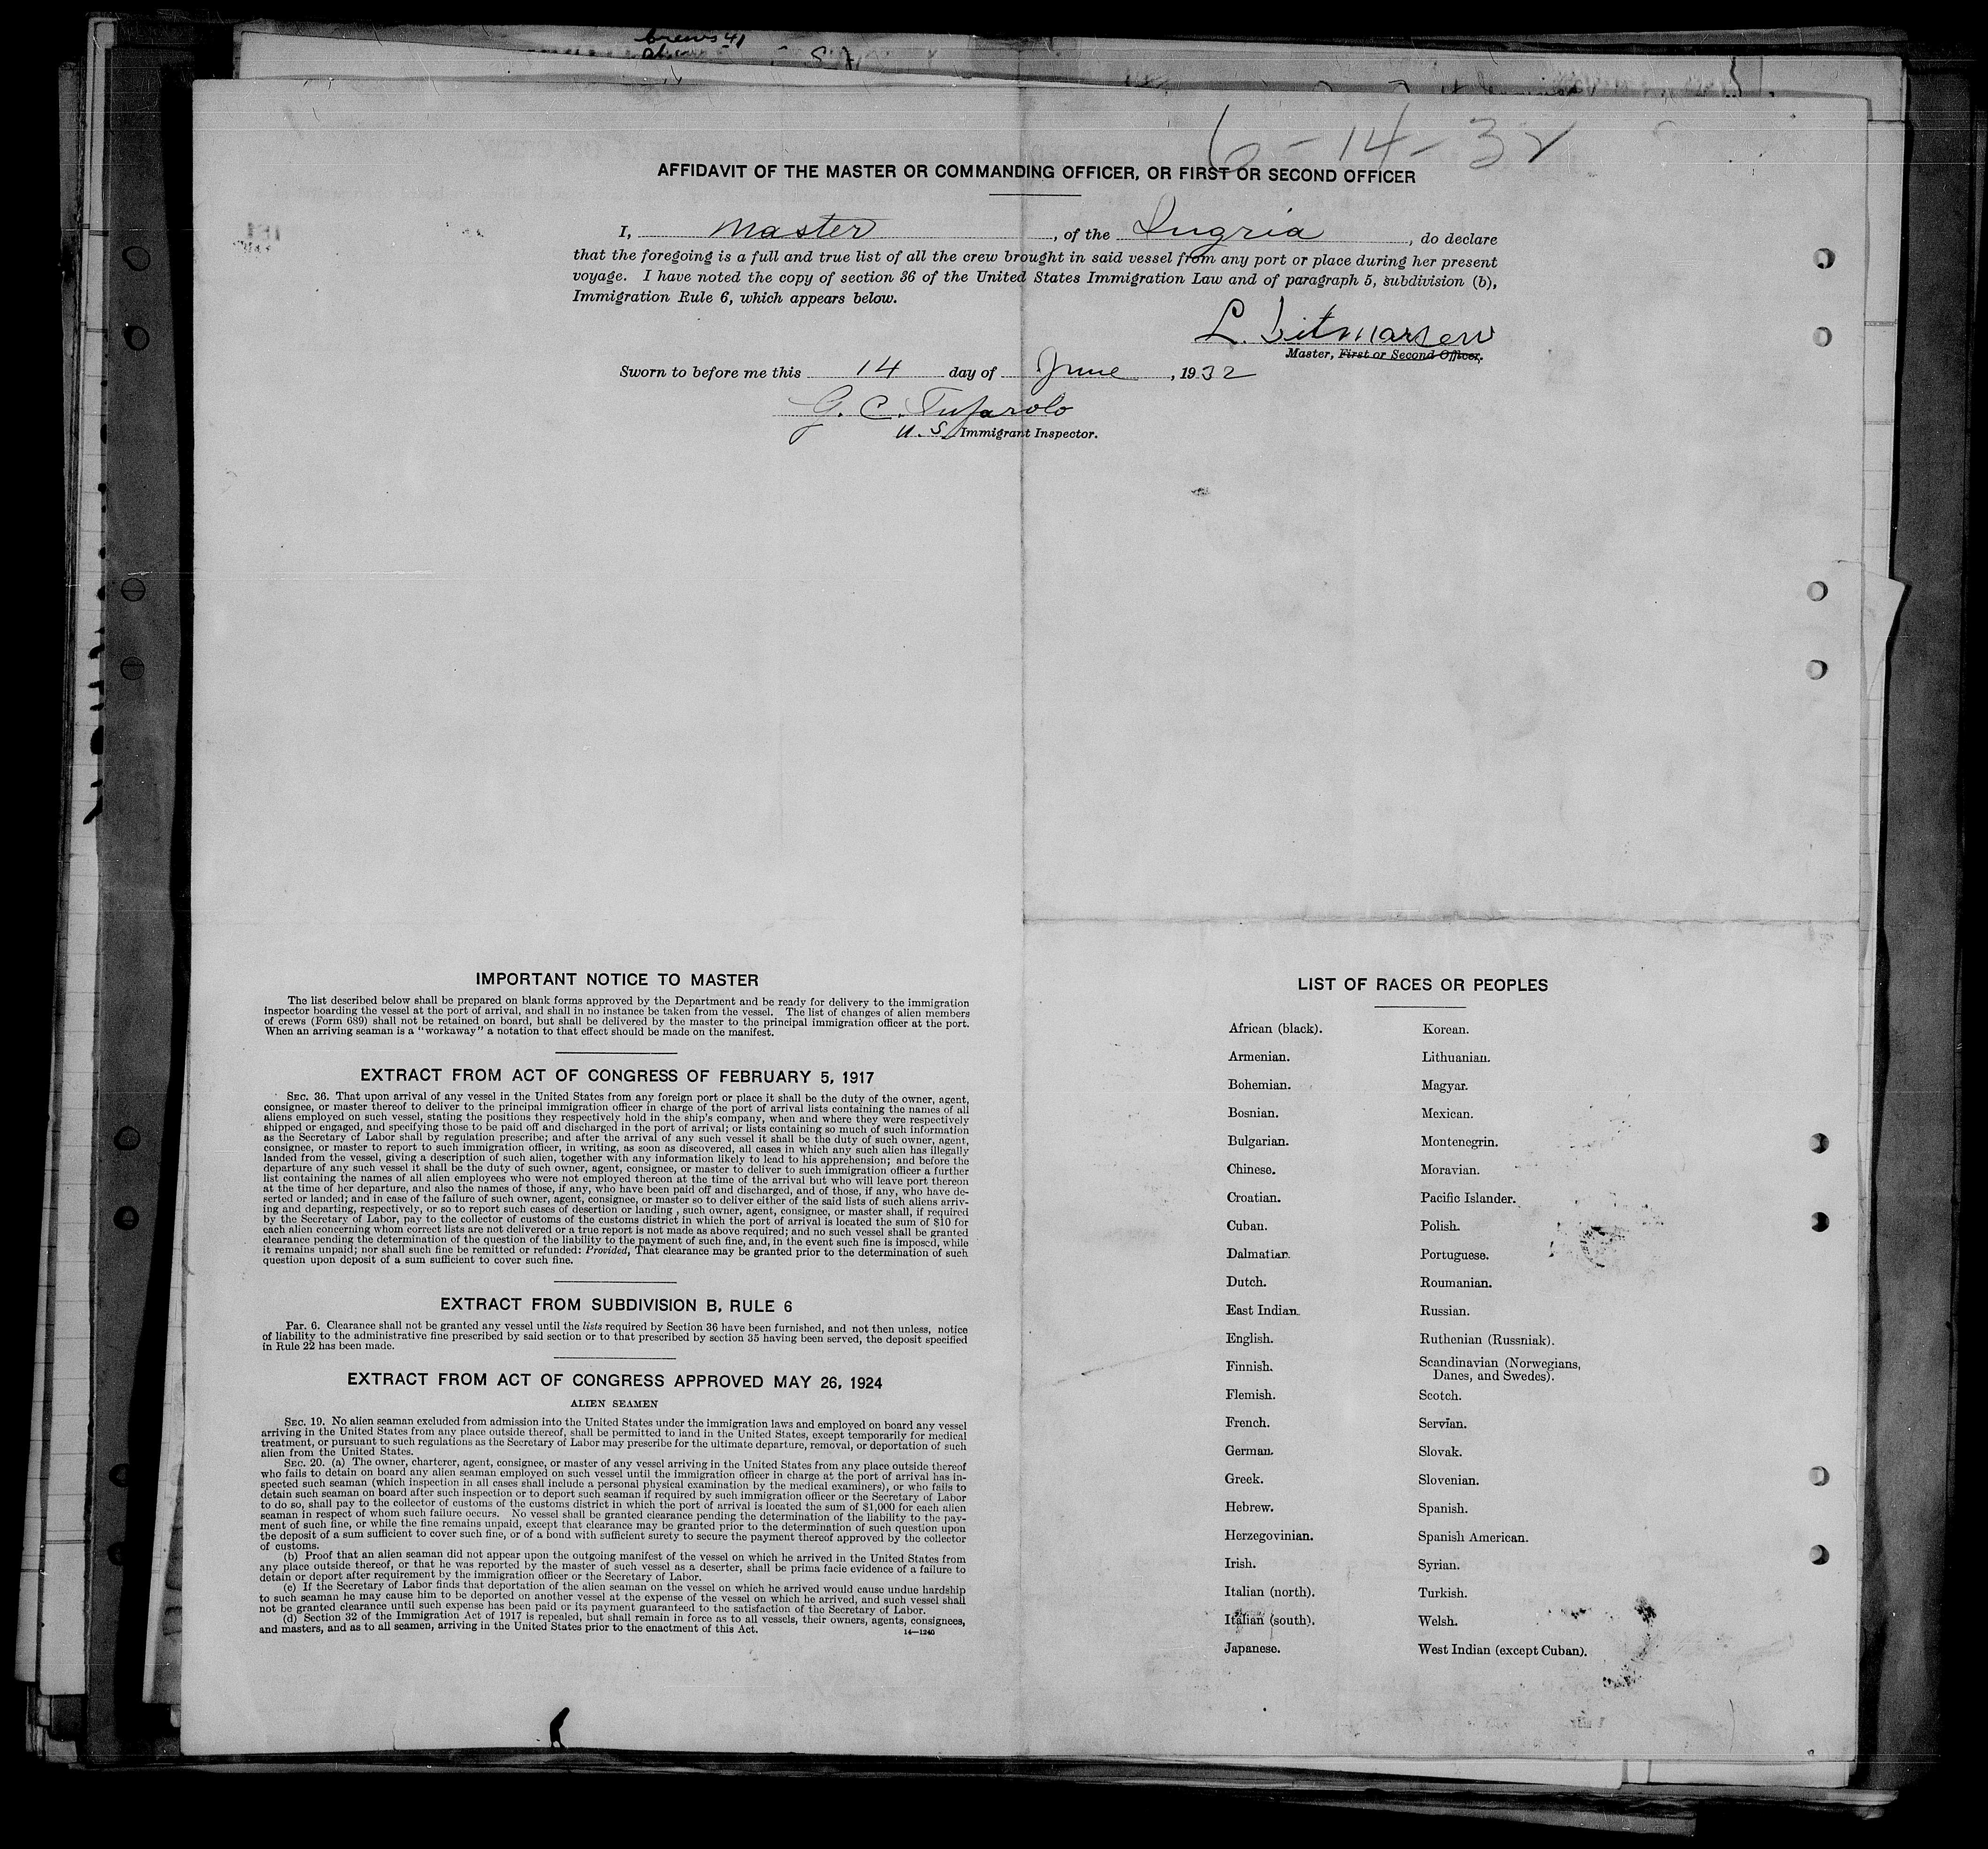 6-14-32
AFFIDAVIT OF THE MASTER OR COMMANDING OFFICER, OR FIRST OR SECOND OFFICER
I, Master, of the Ingria, do declare
that the foregoing is a full and true list of all the crew brought in said vessel from any port or place during her present
voyage. I have noted the copy of section 36 of the United States Immigration Law and of paragraph 5, subdivision (b),
Immigration Rule 6, which appears below.
L.
Master, First or Second Officer.
Sworn to before me this 14 day of June, 1932
G. C.
U.S. Immigrant Inspector.
IMPORTANT NOTICE TO MASTER
The list described below shall be prepared on blank forms approved by the Department and be ready for delivery to the immigration
inspector boarding the vessel at the port of arrival, and shall in no instance be taken from the vessel. The list of changes of alien members
of crews (Form 689) shall not be retained on board, but shall be delivered by the master to the principal immigration officer at the port.
When an arriving seaman is a "workaway" a notation to that effect should be made on the manifest.
EXTRACT FROM ACT OF CONGRESS OF FEBRUARY 5, 1917
SEC. 36. That upon arrival of any vessel in the United States from any foreign port or place it shall be the duty of the owner, agent,
consignee, or master thereof to deliver to the principal immigration officer in charge of the port of arrival lists containing the names of all
aliens employed on such vessel, stating the positions they respectively hold in the ship's company, when and where they were respectively
shipped or engaged, and specifying those to be paid off and discharged in the port of arrival; or lists containing so much of such information
as the Secretary of Labor shall by regulation prescribe; and after the arrival of any such vessel it shall be the duty of such owner, agent,
consignee, or master to report to such immigration officer, in writing, as soon as discovered, all cases in which any such alien has illegally
landed from the vessel, giving a description of such alien, together with any information likely to lead to his apprehension; and before the
departure of any such vessel it shall be the duty of such owner, agent, consignee, or master to deliver to such immigration officer a further
list containing the names of all alien employees who were not employed thereon at the time of the arrival but who will leave port thereon
at the time of her departure, and also the names of those, if any, who have been paid off and discharged, and of those, if any, who have de-
serted or landed; and in case of the failure of such owner, agent, consignee, or master so to deliver either of the said lists of such aliens arriv-
ing and departing, respectively, or so to report such cases of desertion or landing , such owner, agent, consignee, or master shall, if required
by the Secretary of Labor, pay to the collector of customs of the customs district in which the port of arrival is located the sum of $10 for
each alien concerning whom correct lists are not delivered or a true report is not made as above required; and no such vessel shall be granted
clearance pending the determination of the question of the liability to the payment of such fine, and, in the event such fine is imposed, while
it remains unpaid; nor shall such fine be remitted or refunded: Provided, That clearance may be granted prior to the determination of such
question upon deposit of a sum sufficient to cover such fine.
EXTRACT FROM SUBDIVISION B, RULE 6
Par. 6. Clearance shall not be granted any vessel until the lists required by Section 36 have been furnished, and not then unless, notice
of liability to the administrative fine prescribed by said section or to that prescribed by section 35 having been served, the deposit specified
in Rule 22 has been made.
EXTRACT FROM ACT OF CONGRESS APPROVED MAY 26, 1924
ALIEN SEAMEN
SEC. 19. No alien seaman excluded from admission into the United States under the immigration laws and employed on board any vessel
arriving in the United States from any place outside thereof, shall be permitted to land in the United States, except temporarily for medical
treatment, or pursuant to such regulations as the Secretary of Labor may prescribe for the ultimate departure, removal, or deportation of such
alien from the United States.
SEC. 20. (a) The owner, charterer, agent, consignee, or master of any vessel arriving in the United States from any place outside thereof
who fails to detain on board any alien seaman employed on such vessel until the immigration officer in charge at the port of arrival has in-
spected such seaman (which inspection in all cases shall include a personal physical examination by the medical examiners), or who fails to
detain such seaman on board after such inspection or to deport such seaman if required by such immigration officer or the Secretary of Labor
to do so, shall pay to the collector of customs of the customs district in which the port of arrival is located the sum of $1,000 for each alien
seaman in respect of whom such failure occurs. No vessel shall be granted clearance pending the determination of the liability to the pay-
ment of such fine, or while the fine remains unpaid, except that clearance may be granted prior to the determination of such question upon
the deposit of a sum sufficient to cover such fine, or of a bond with sufficient surety to secure the payment thereof approved by the collector
of customs.
(b) Proof that an alien seaman did not appear upon the outgoing manifest of the vessel on which he arrived in the United States from
any place outside thereof, or that he was reported by the master of such vessel as a deserter, shall be prima facie evidence of a failure to
detain or deport after requirement by the immigration officer or the Secretary of Labor.
(c) If the Secretary of Labor finds that deportation of the alien seaman on the vessel on which he arrived would cause undue hardship
to such seaman he may cause him to be deported on another vessel at the expense of the vessel on which he arrived, and such vessel shall
not be granted clearance until such expense has been paid or its payment guaranteed to the satisfaction of the Secretary of Labor.
(d) Section 32 of the Immigration Act of 1917 is repealed, but shall remain in force as to all vessels, their owners, agents, consignees,
and masters, and as to all seamen, arriving in the United States prior to the enactment of this Act.
14—1240
LIST OF RACES OR PEOPLES
African (black).
Armenian.
Bohemian.
Bosnian.
Bulgarian.
Chinese.
Croatian.
Cuban.
Dalmatian.
Dutch.
East Indian.
English.
Finnish.
Flemish.
French.
German.
Greek.
Hebrew.
Herzegovinian.
Irish.
Italian (north).
Italian (south).
Japanese.
Korean.
Lithuanian.
Magyar.
Mexican.
Montenegrin.
Moravian.
Pacific Islander.
Polish.
Portuguese.
Roumanian.
Russian.
Ruthenian (Russniak).
Scandinavian (Norwegians,
Danes, and Swedes).
Scotch.
Servian.
Slovak.
Slovenian.
Spanish.
Spanish American.
Syrian.
Turkish.
Welsh.
West Indian (except Cuban).